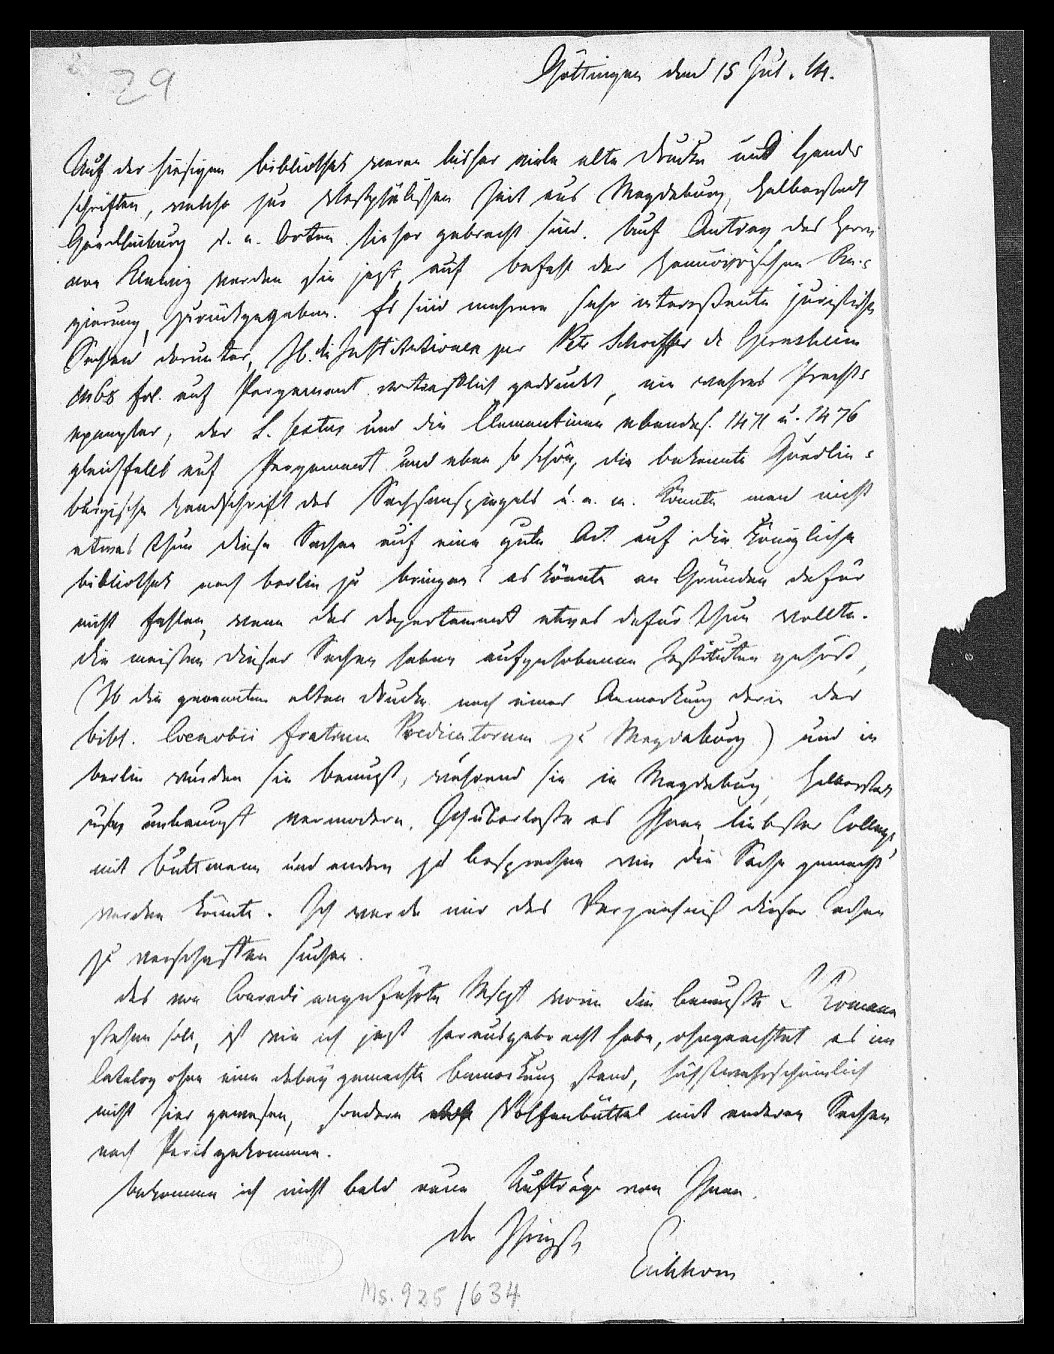 29
Göttingen den 15 Jul. 14.
Auf der hiesigen Bibliothek waren bisher viele alte Drucke und Hand-
schriften, welche zur Westphälischen Zeit aus Magdeburg, Halberstadt
Quedlinburg u. a. Orten hieher gebracht sind. Auf Antrag des Herrn
von Klewiz werden sie jezt auf Befehl der Hannövrischen Re-
gierung zurückgegeben. Es sind mehrere sehr interessante juristische
Sachen darunter, z.b. die Institutionen per Petr Schoiffer de Gernsheim
1468 fol. auf Pergament vortreflich gedruckt, ein wahres Pracht-
exemplar, der L. sextus und die Clementinen ebendas. 1471 u. 1476
gleichfalls auf Pergament und eben so schön, die bekannte Quedlin-
burgische Handschrift des Sachsenspiegels u. a. m. Könnte man nicht
etwas thun diese Sachen auf eine gute Art auf die Königliche
Bibliothek nach Berlin zu bringen? es könnte an Gründen dafür
nicht fehlen, wenn das Departement etwas dafür thun wollte.
Die meisten dieser Sachen haben aufgehobenen Instituten gehört,
(zb die genannten alten Drucke nach einer Anmerkung darin der
bibl. Coenobii fratrum Predicatorum zu Magdeburg) und in
Berlin würden sie benuzt, während sie in Magdeburg, Halberstadt
unbenuzt vermodern. Ich überlasse es Ihnen, liebster College,
mit Buttmann und andern zu besprechen wie die Sache gemacht
werden könnte. Ich werde mir das Verzeichniß dieser Sachen
zu verschaffen suchen.
Das von Conradi angeführte Mscpt worin die benuzte L Romana
stehen soll, ist wie ich jezt herausgebracht habe, ohngeachtet es im
Catalog ohne eine dabey gemachte Bemerkung stand, höchstwahrscheinlich
nicht hier gewesen, sondern Wolfenbüttel mit anderen Sachen
nach Paris gekommen.
Bekomme ich nicht bald neue Aufträge von Ihnen.
der Ihrigste
Eichhorn
Ms. 925/634